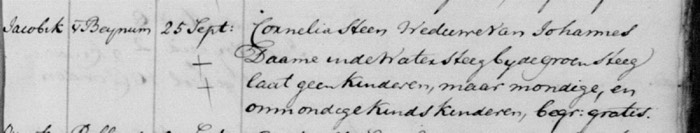 Jacobek v Beynum 25 Sept: Cornelia Steen Weduwe van Johannes
Daame inde Water steeg by de groen Steeg
laat geen kinderen, maar mondige, en
onmondege kinds kinderen, begr: gratis.